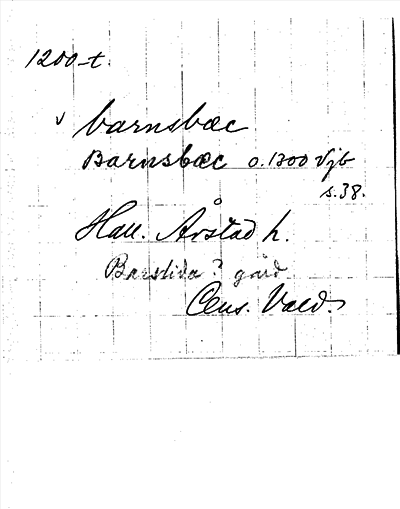 1200-t.
v barnsbæc
Barnsbæc o. 1300 Vjb
s. 38.
Hall. Årstad h.
Barslida? gård
Cens. Vald.